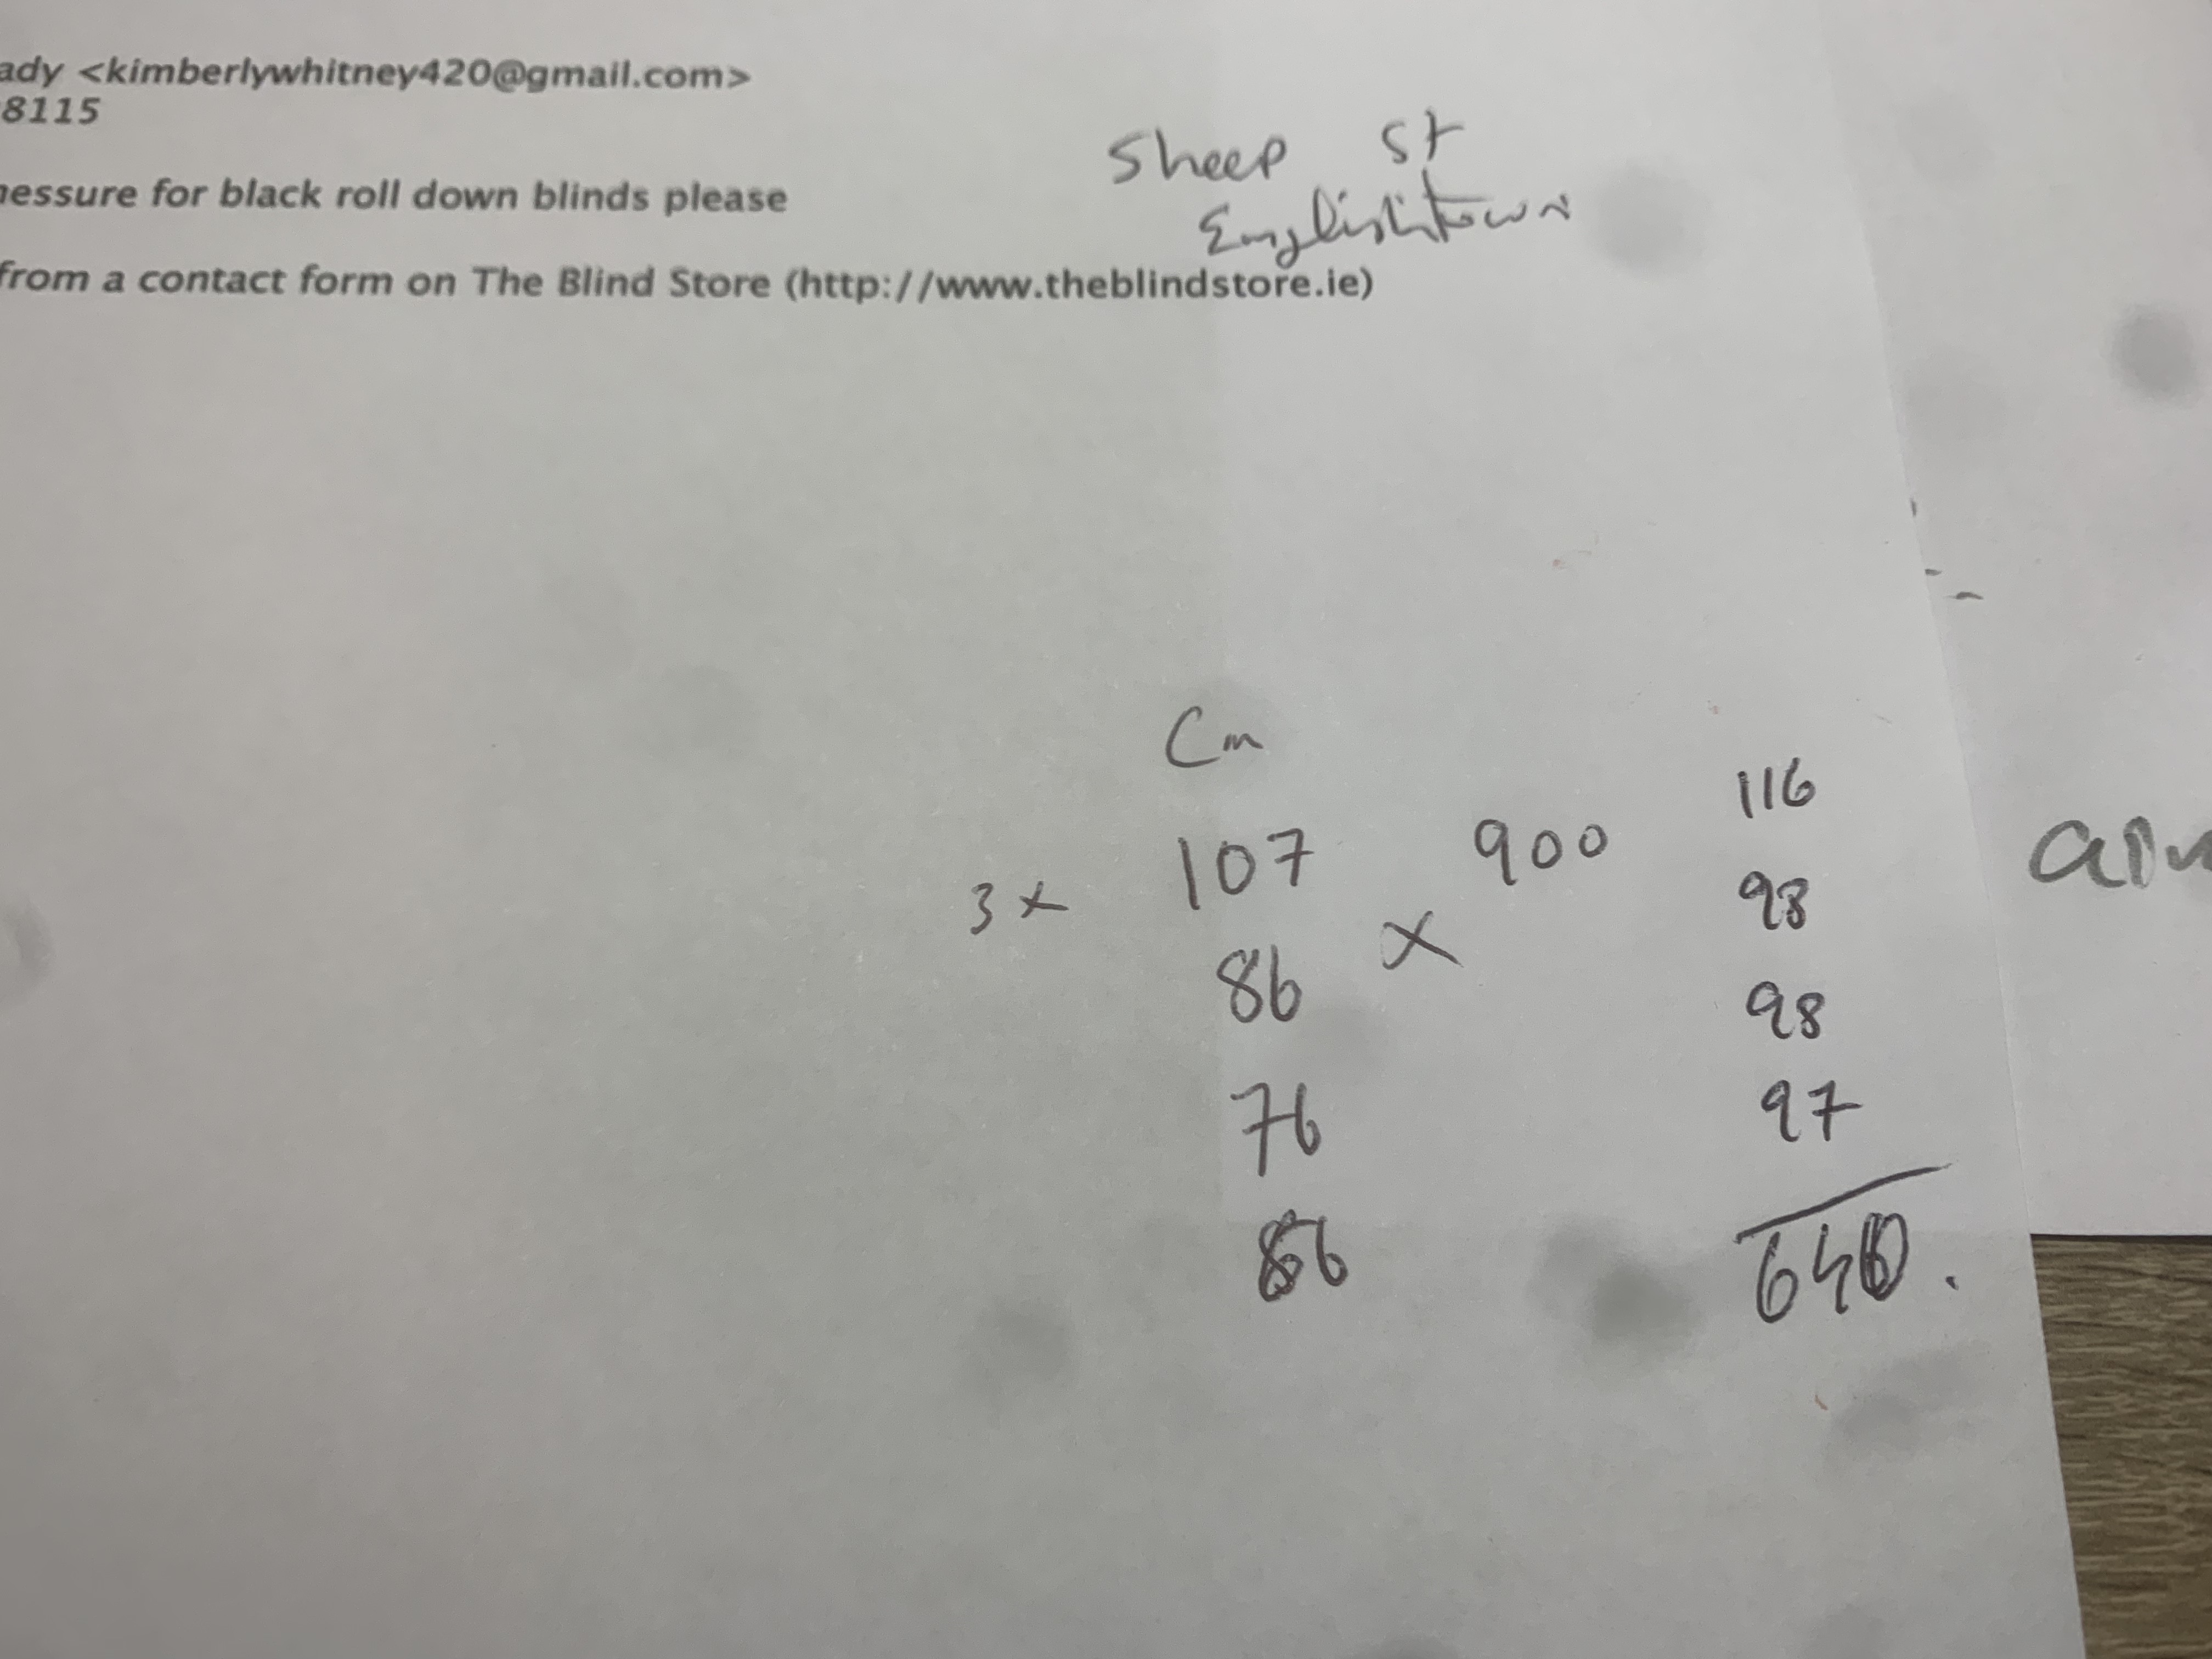 ady <kimberlywhitney420@gmail.com>
8115
essure for black roll down blinds please
Sheep St
Englishtown
from a contact form on The Blind Store (http://www.theblindstore.ie)
Cm
116
3 x 107 900
98
86 x
98
76
97
86
640.